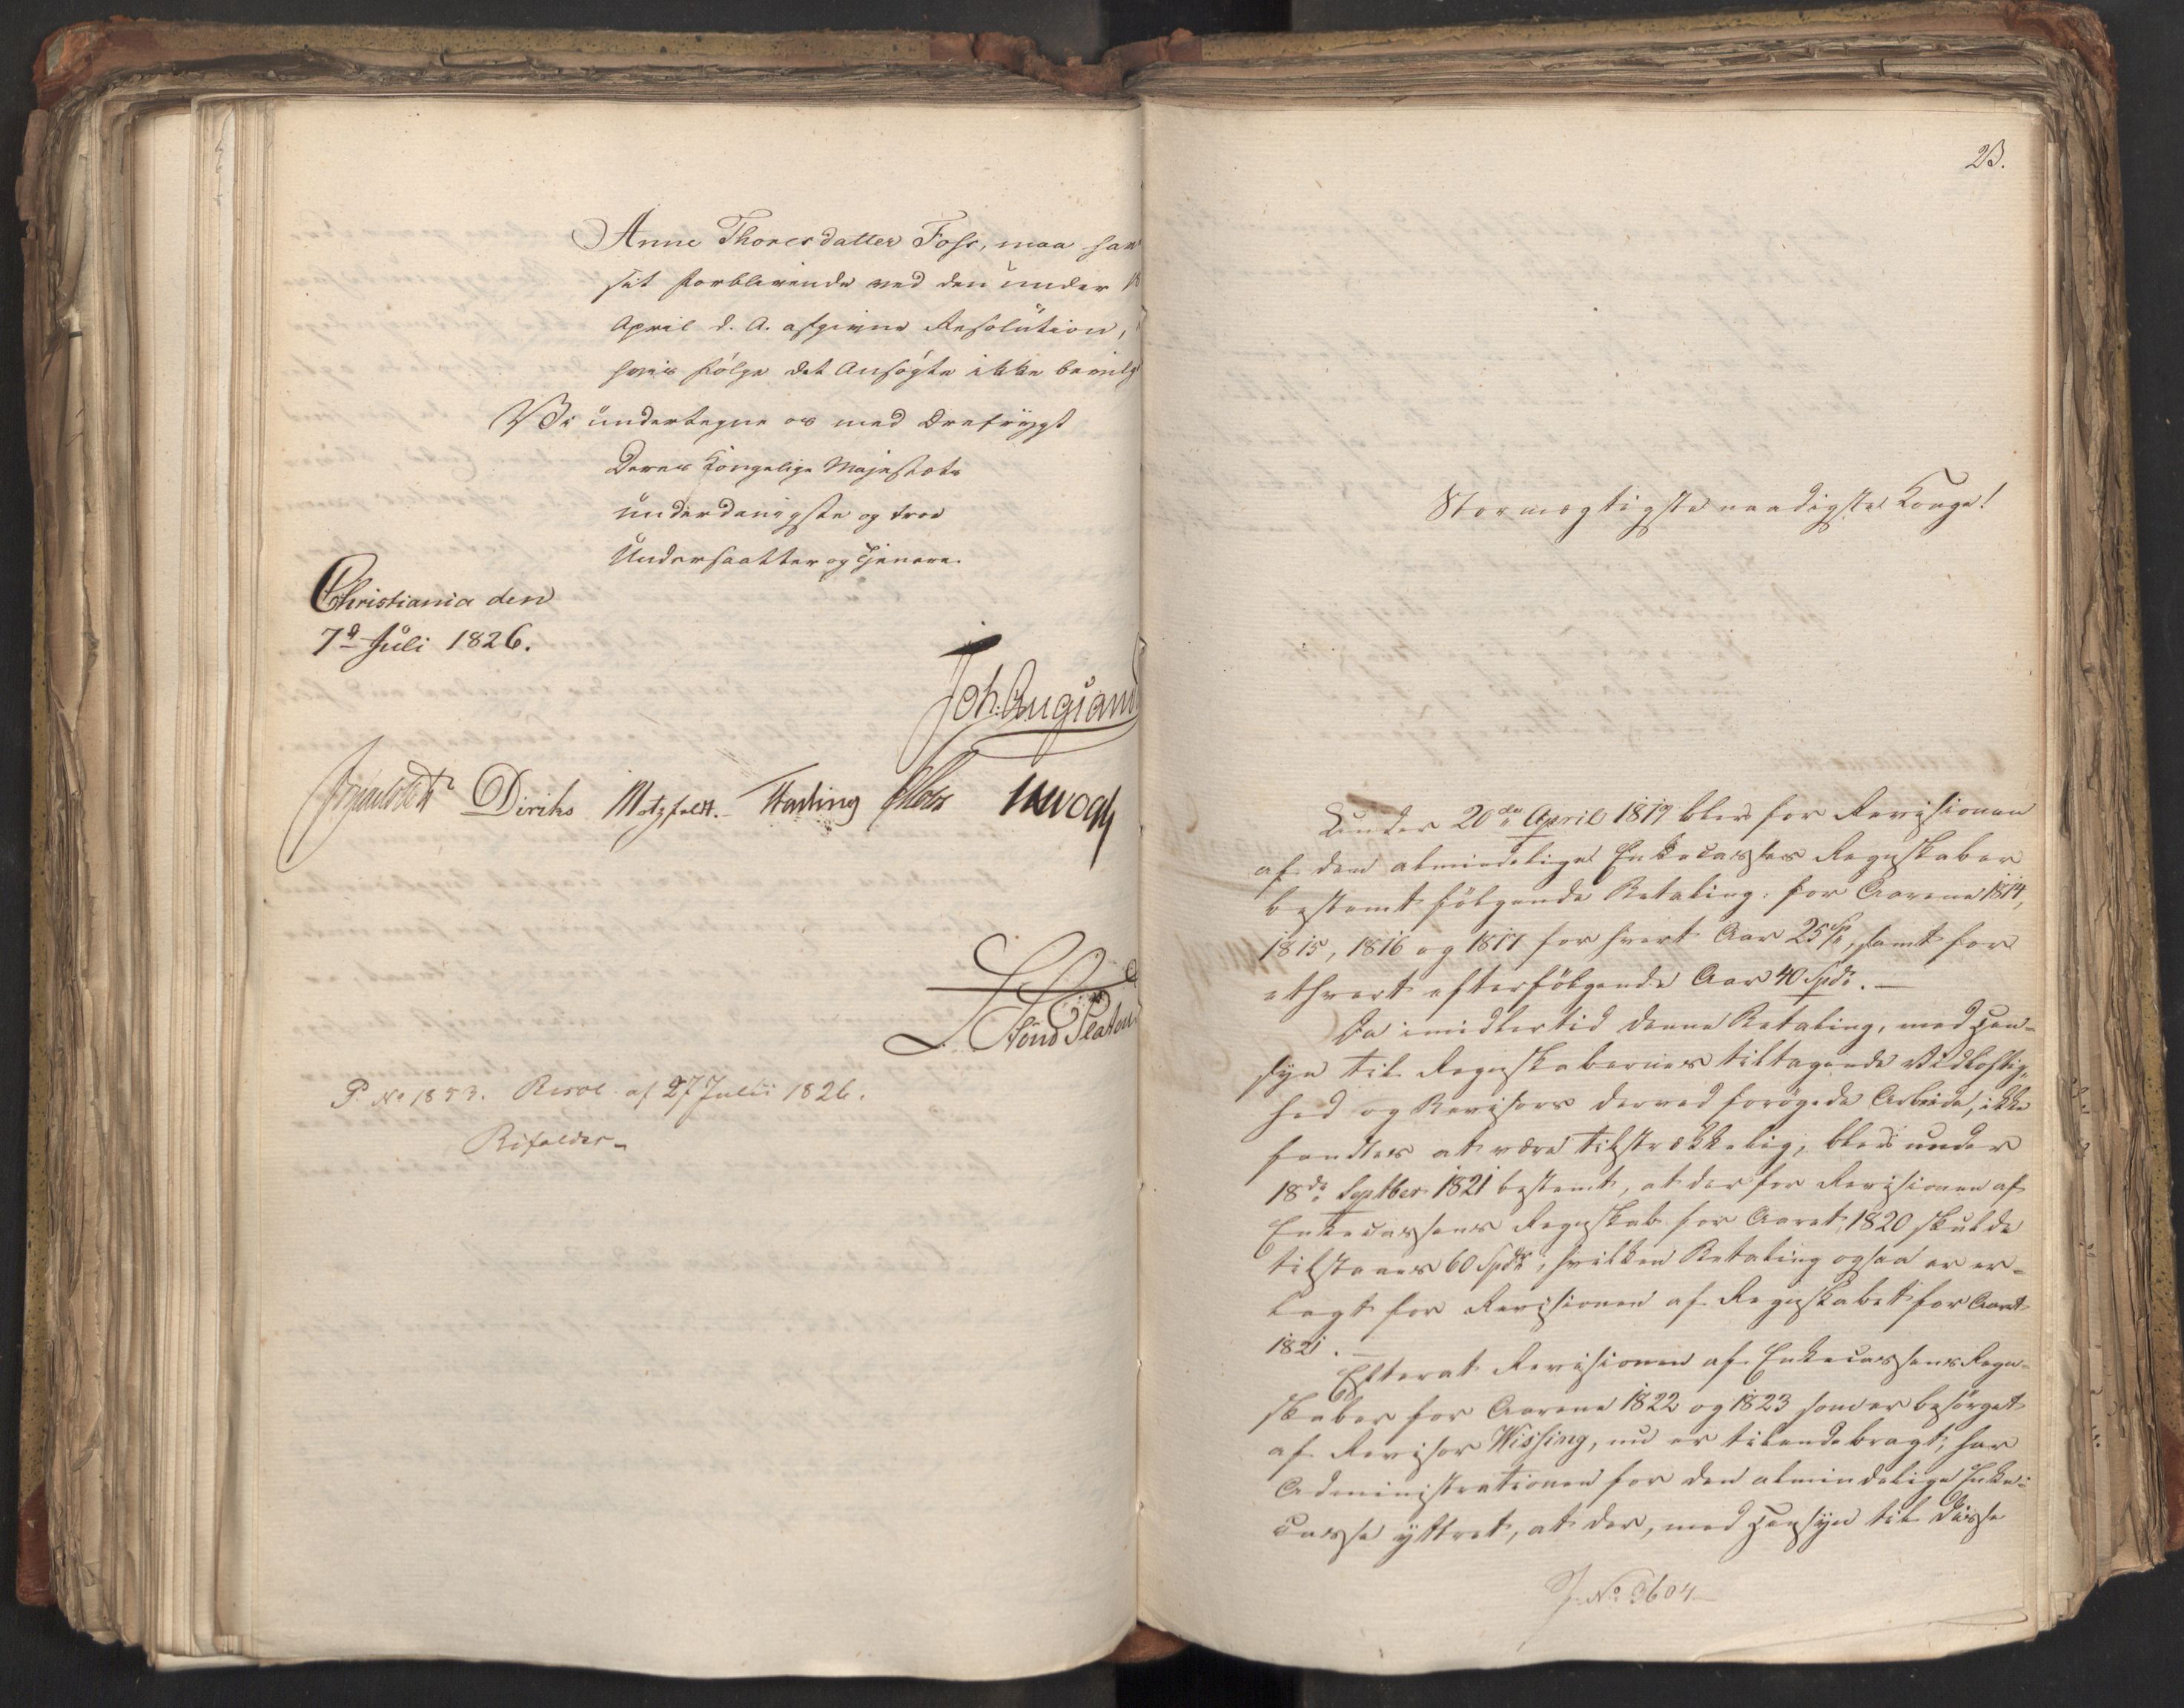 Anne Thoresdatter Foss, maa have
sit Forblivende ved den under 18
April d. A. afgivne Resolution, i
hvis Følge det Ansøgte ikke bevilg
Vi undertegne os med Ærefrygt
Deres Kongelige Majestæts
underdanigste og troe
Undersaatter og Tjenere.
Christiania den
7de Juli 1826.
Joh. Aug. Sand
Diriks Motzfeldt. Fasting Holst JHVogt
P No 1853. Resol. af 27 Julii 1826.
23.
Stormægtigste naadigste Konge!
Under 20de April 1819 blev for Revisionen
af den almindelige Enkecasses Regnskaber
bestemt følgende Betaling: for Aarene 1814,
1815, 1816 og 1817 for hvert Aar 25 Sp, samt for
ethvert efterfølgende Aar 40 Spd. —
Da imidlertid denne Betaling, med Hen-
syn til Regnskabernes tiltagende Vidløftig-
hed og Revisors derved forøgede Arbeide, ikke
fandtes at være tilstrækkelig, blev under
18de Septber 1821 bestemt, at der for Revisionen af
Enkecassens Regnskab for Aaret 1820 skulde
tilstaaes 60 Spdr, hvilken Betaling ogsaa er er-
lagt for Revisionen af Regnskabet for Aaret
1821. —
Efterat Revisionen af Enkecassens Regn-
skaber for Aarene 1822 og 1823 som er besørget
af Revisor Wissing, nu er tilendebragt, har
Administrationen for den almindelige Enke-
casse yttret, at der, med Hensyn til disse
J. No 3604